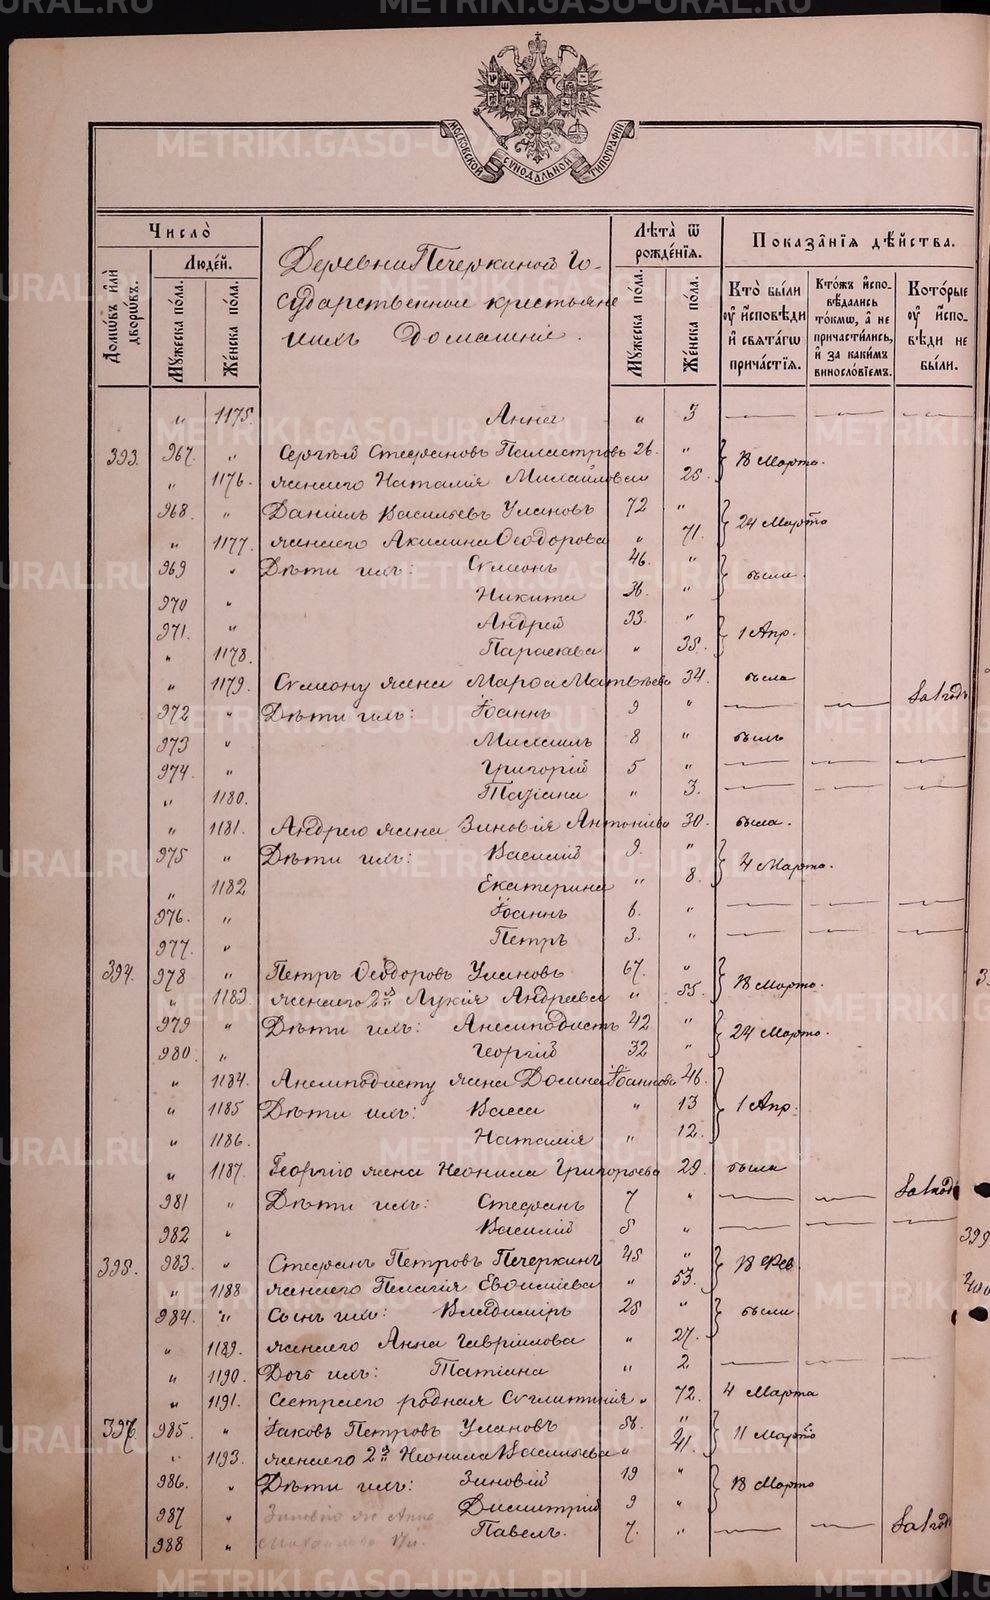 METRIKI.GASO-URAL.RU
МОСКОВСКОЙ СѴНОДАЛЬНОЙ ТИПОГРАФІИ
Число̀
Люде́й.
Домѡ́въ и҆лѝ дворѡ́въ.
Мꙋ́жеска по́ла.
Же́нска по́ла.
Деревни Печеркиной Го-
сударственные крестьяне
ихъ Домашніе.
Лѣ́та ѿ рожде́нїѧ.
Мꙋ́жеска по́ла.
Же́нска по́ла.
Показа̑нїѧ дѣ́йства.
Кто̀ бы́ли ᲂу҆ и҆сповѣ́ди и҆ свѧта́гѡ прича́стїѧ.
Кто́жъ и҆спо-вѣ́дались то́кмѡ, а҆ не причасти́лись, и҆ за каки́мъ винослⷪ҇вїемъ.
Кото́рые ᲂу҆ и҆спо-вѣ́ди не бы́ли.
" 1175. Анна " 3 — — —
393. 967. " Сергѣй Стефановъ Паластровъ 26. " } 18 Марта.
" 1176. жена его Наталія Михайлова 25.
968. " Даніилъ Васильевъ Улановъ 72 " } 24 Марта
" 1177. жена его Акилина Ѳеодорова " 71.
969 " Дѣти ихъ: Сѵмеонъ 46. " } были.
970 " Никита 36. "
971. " Андрей 33. " } 1 Апр.
" 1178. Параскева " 35.
" 1179. Сѵмеону жена Марѳа Матвѣева 34. была
972 " Дѣти ихъ: Іоаннъ 9 " — — За 1 годъ
973 " Михаилъ 8 " былъ
974. " Григорій 5 " — — —
" 1180. Татіана " 3. — — —
" 1181. Андрею жена Зиновія Антоніева 30. была.
975 " Дѣти ихъ: Василій 9. " } 4 Марта.
" 1182 Екатерина " 8.
976. " Іоаннъ 6. " — — —
977. " Петръ 3. " — — —
394. 978 " Петръ Ѳеодоровъ Улановъ 67. " } 18 Марта.
" 1183. жена его 2я Лукія Андреева " 55.
979 " Дѣти ихъ: Анемподистъ 42 " } 24 Марта.
980. " Георгій 32 "
" 1184. Анемподисту жена Домна Іоаннова 46. } 1 Апр.
" 1185 Дѣти ихъ: Васса " 13
" 1186. Наталія " 12.
" 1187. Георгію жена Неонила Григорьева 29. была
981 " Дѣти ихъ: Стефанъ 7 " — — За 1 годъ
982 " Василій 5 " — — —
395. 983. " Стефанъ Петровъ Печеркинъ 45 " } 18 Фев.
" 1188 жена его Пелагія Евѳиміева " 53.
984. " Сынъ ихъ: Владиміръ 25 " } были
" 1189. жена его Анна Гавріилова " 27.
" 1190. Дочь ихъ: Татіана " 2 — — —
" 1191. Сестра его родная Сѵглитикія " 72. 4 Марта
397. 985. " Іаковъ Петровъ Улановъ 56. " } 11 Марта
" 1193. жена его 2я Неонила Васильева " 41.
986. " Дѣти ихъ: Зиновій 19 " } 18 Марта
987 " Димитрій 9 "
Зиновію ж Анна
988 " Павелъ. 7. " — — За 1 годъ
399
400